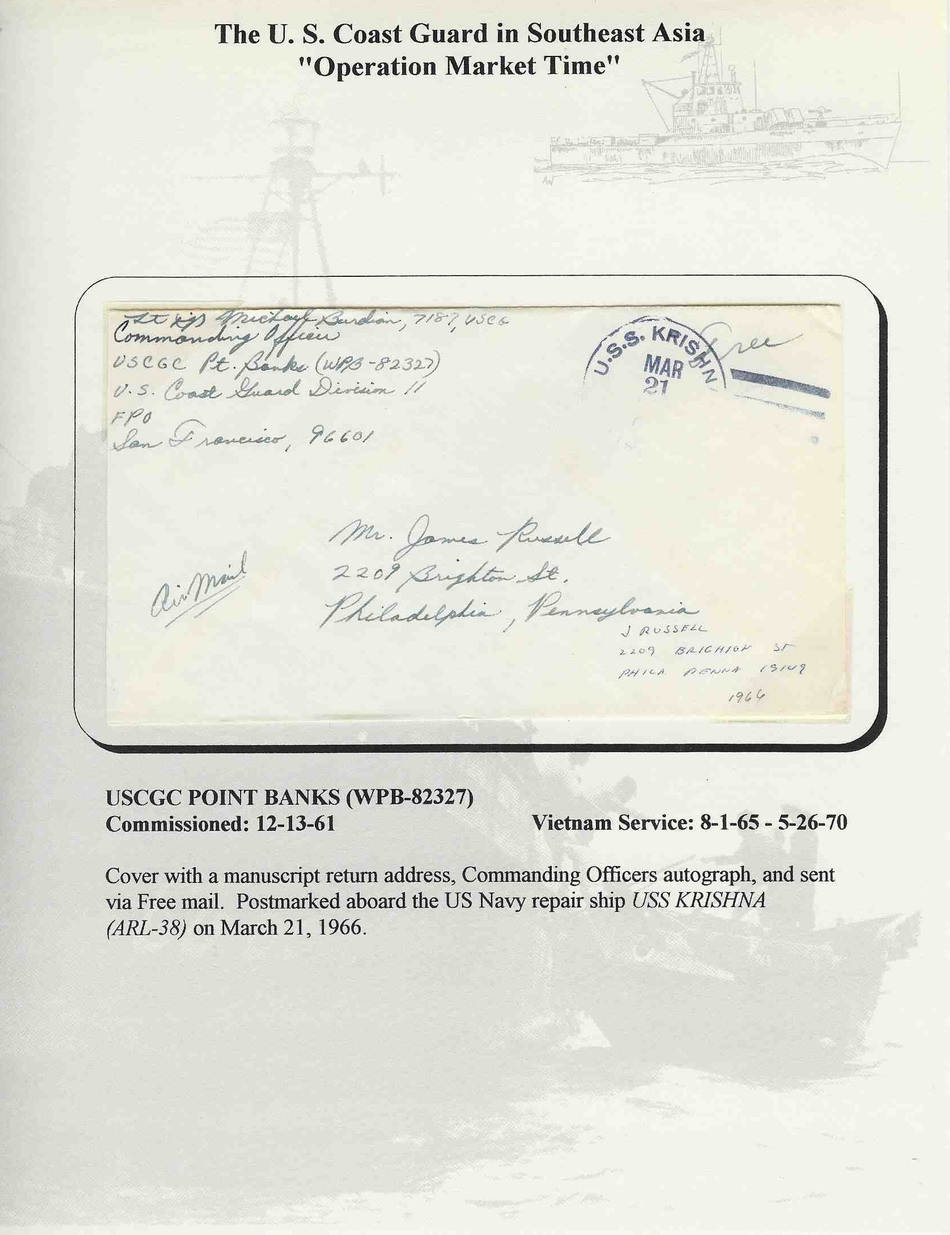 The U. S. Coast Guard in Southeast Asia
"Operation Market Time"
Lt (jg) Michael Burdian, 7187, USCG
Commanding Officer
USCGC Pt. Banks (WPB-82327)
U.S. Coast Guard Division 11
FPO
San Francisco, 96601
U.S.S. KRISHN
MAR
21
Free
Mr. James Russell
2209 Brighton St.
Philadelphia, Pennsylvania
Air Mail
J RUSSELL
2209 BRIGHTON ST
PHILA PENNA 19149
1966
USCGC POINT BANKS (WPB-82327)
Commissioned: 12-13-61 Vietnam Service: 8-1-65 - 5-26-70
Cover with a manuscript return address, Commanding Officers autograph, and sent
via Free mail. Postmarked aboard the US Navy repair ship USS KRISHNA
(ARL-38) on March 21, 1966.